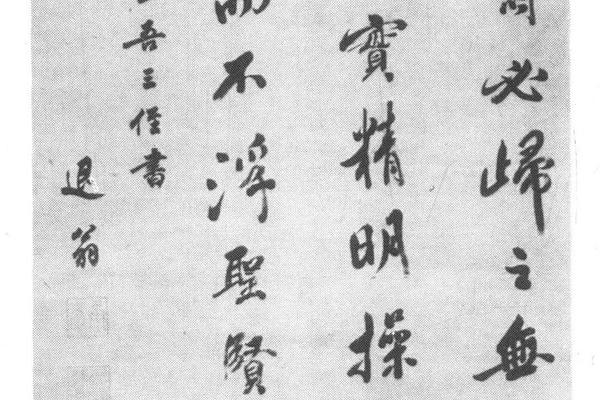 必歸之無
寶精明操
不浮聖賢
吾三侄書
退翁